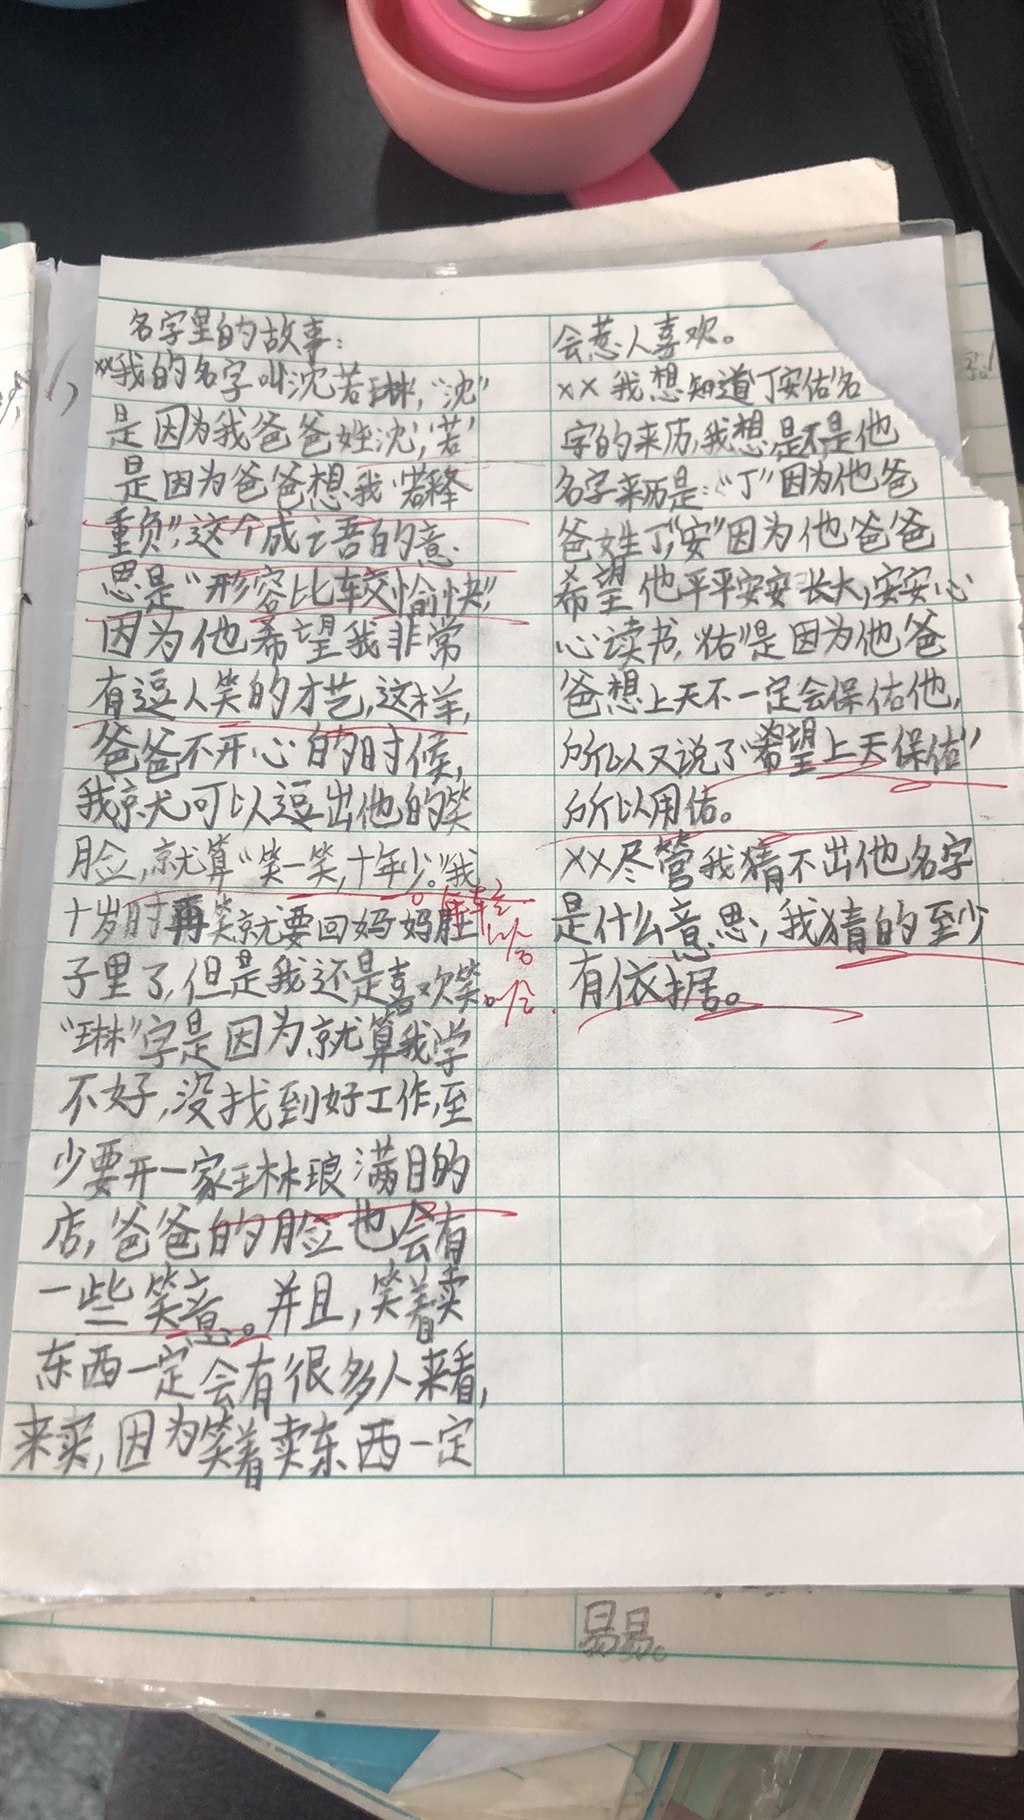 名字里的故事:
××我的名字叫沈若琳,"沈"
是因为我爸爸姓沈,"若"
是因为爸爸想我"若释
重负",这个成语的意
思是"形容比较愉快",
因为他希望我非常
有逗人笑的才艺,这样,
爸爸不开心的时候,
我就可以逗出他的笑
脸,就算"笑一笑,十年少。"我
十岁时再笑就要回妈妈肚
子里了,但是我还是喜欢笑。
"琳"字是因为就算我学
不好,没找到好工作,至
少要开一家琳琅满目的
店,爸爸的脸也会有
一些笑意。并且,笑着卖
东西一定会有很多人来看,
来买,因为笑着卖东西一定
会惹人喜欢。
××我想知道"丁安佑"名
字的来历,我想是不是他
名字来历是:"丁"因为他爸
爸姓丁,"安"因为他爸爸
希望他平平安安长大,安安心
心读书,"佑"是因为他爸
爸想上天不一定会保佑他,
所以又说了"希望上天保佑"
所以用佑。
××尽管我猜不出他名字
是什么意思,我猜的至少
有依据。
哈哈
哈
易易。